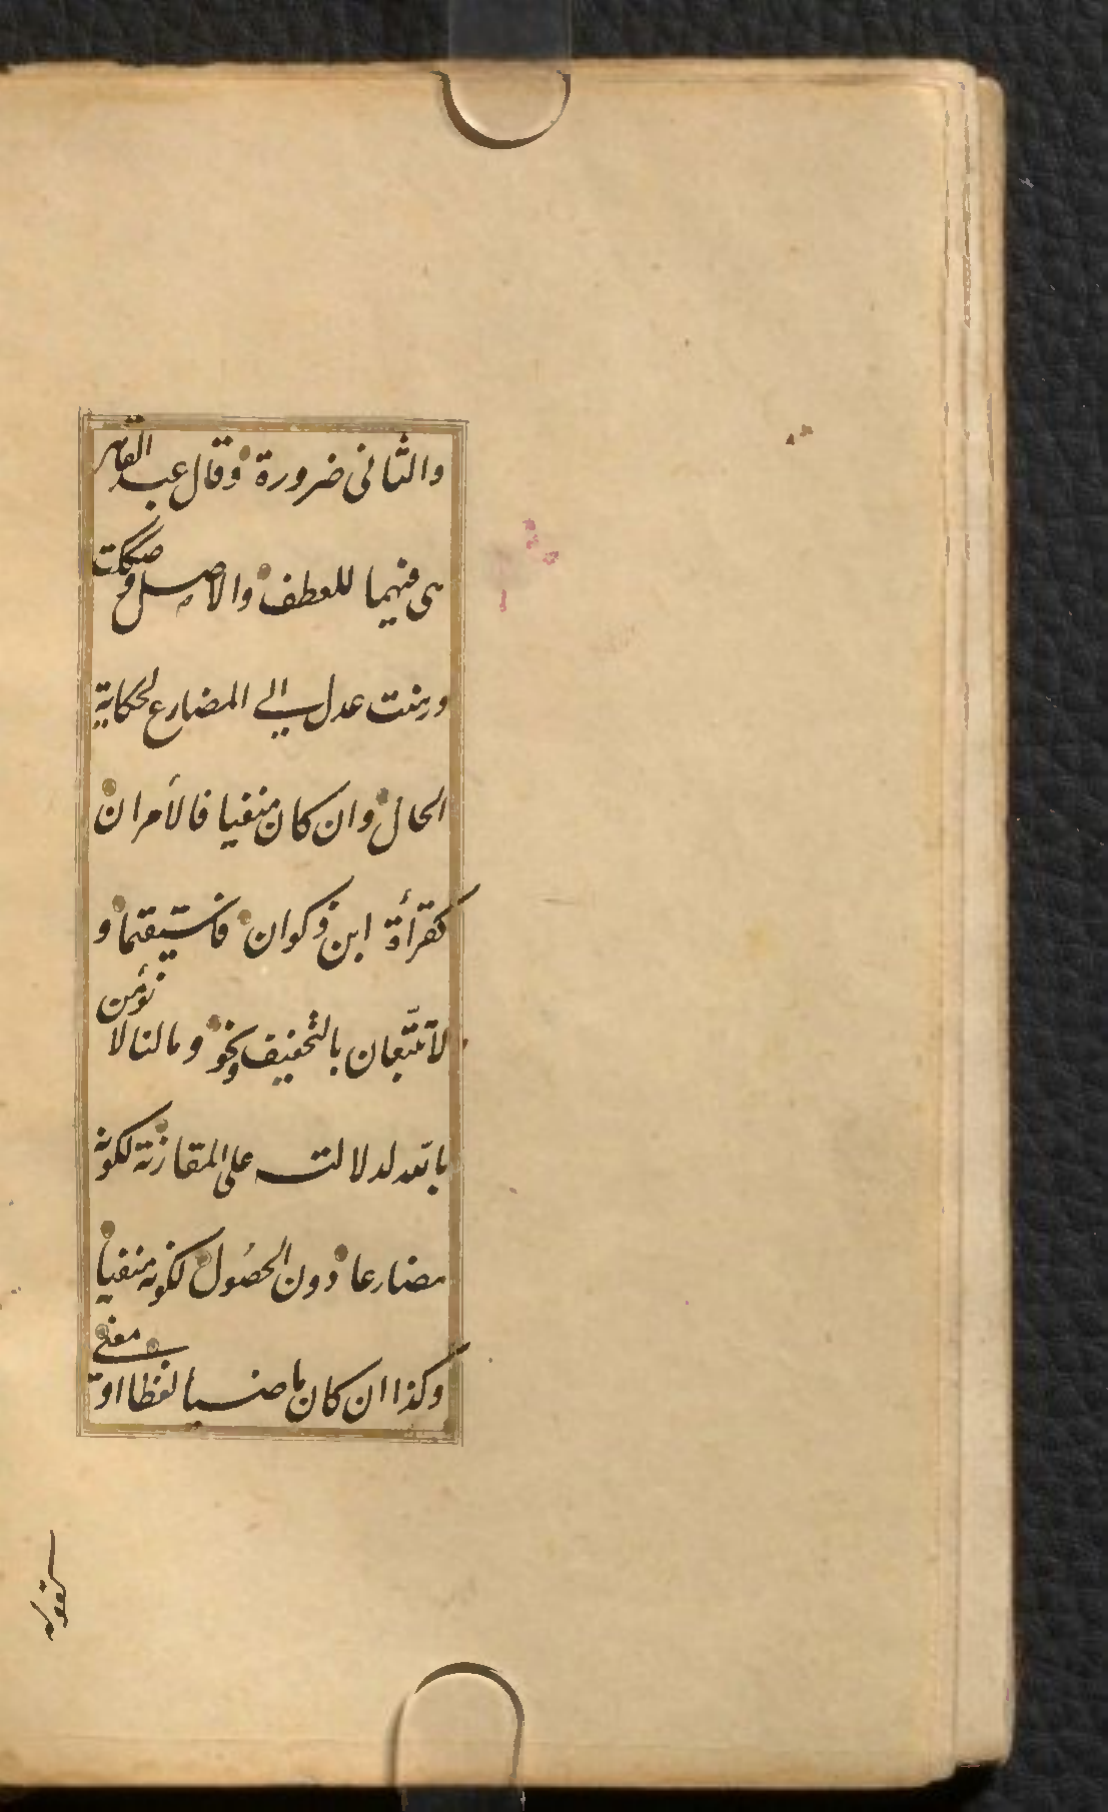 والثانى ضرورة وقال عبد القاهر
هى فيهما للعطف والاصل وصككت
ورهنت عدل الى المضارع لحكاية
الحال وان كان منفيا فالأمران
كقرأة ابن ذكوان فاستقيما و
لا تتبعان بالتخفيف ونحو ومالنا لا نؤمن
بالله لدلالته على المقارنة لكونه
مضارعا دون الحصول لكونه منفيا
وكذا ان كان ماضيا لفظا او معنى
كقوله